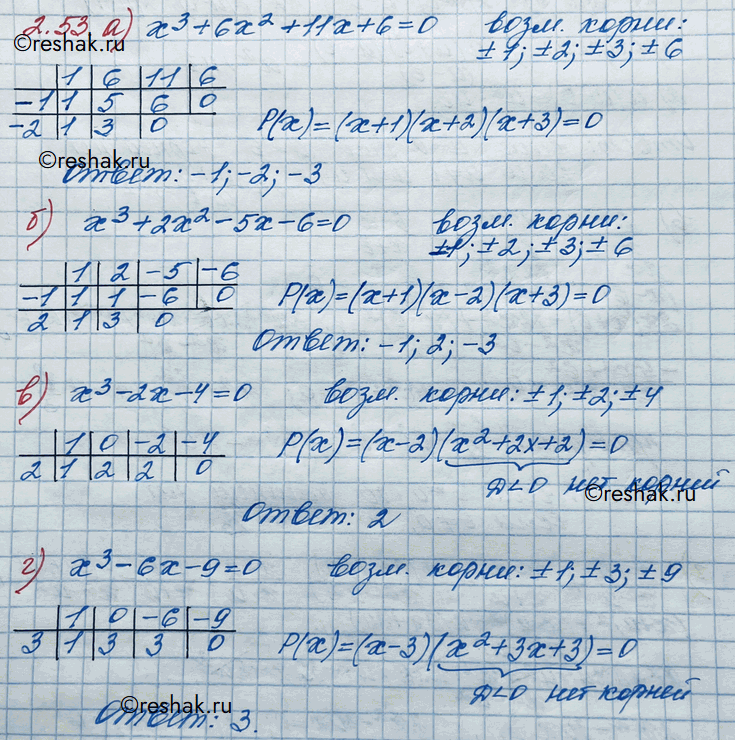 2.53 а) x³+6x²+11x+6=0 возм. корни:
±1; ±2; ±3; ±6
1 6 11 6
-1 1 5 6 0
-2 1 3 0
P(x)=(x+1)(x+2)(x+3)=0
©reshak.ru
Ответ: -1; -2; -3
б) x³+2x²-5x-6=0 возм. корни:
±1; ±2; ±3; ±6
1 2 -5 -6
-1 1 1 -6 0
2 1 3 0
P(x)=(x+1)(x-2)(x+3)=0
Ответ: -1; 2; -3
в) x³-2x-4=0 возм. корни: ±1; ±2; ±4
1 0 -2 -4
2 1 2 2 0
P(x)=(x-2)(x²+2x+2)=0
D<0 нет корней
©reshak.ru
Ответ: 2
г) x³-6x-9=0 возм. корни: ±1; ±3; ±9
1 0 -6 -9
3 1 3 3 0
P(x)=(x-3)(x²+3x+3)=0
D<0 нет корней
©reshak.ru
Ответ: 3.